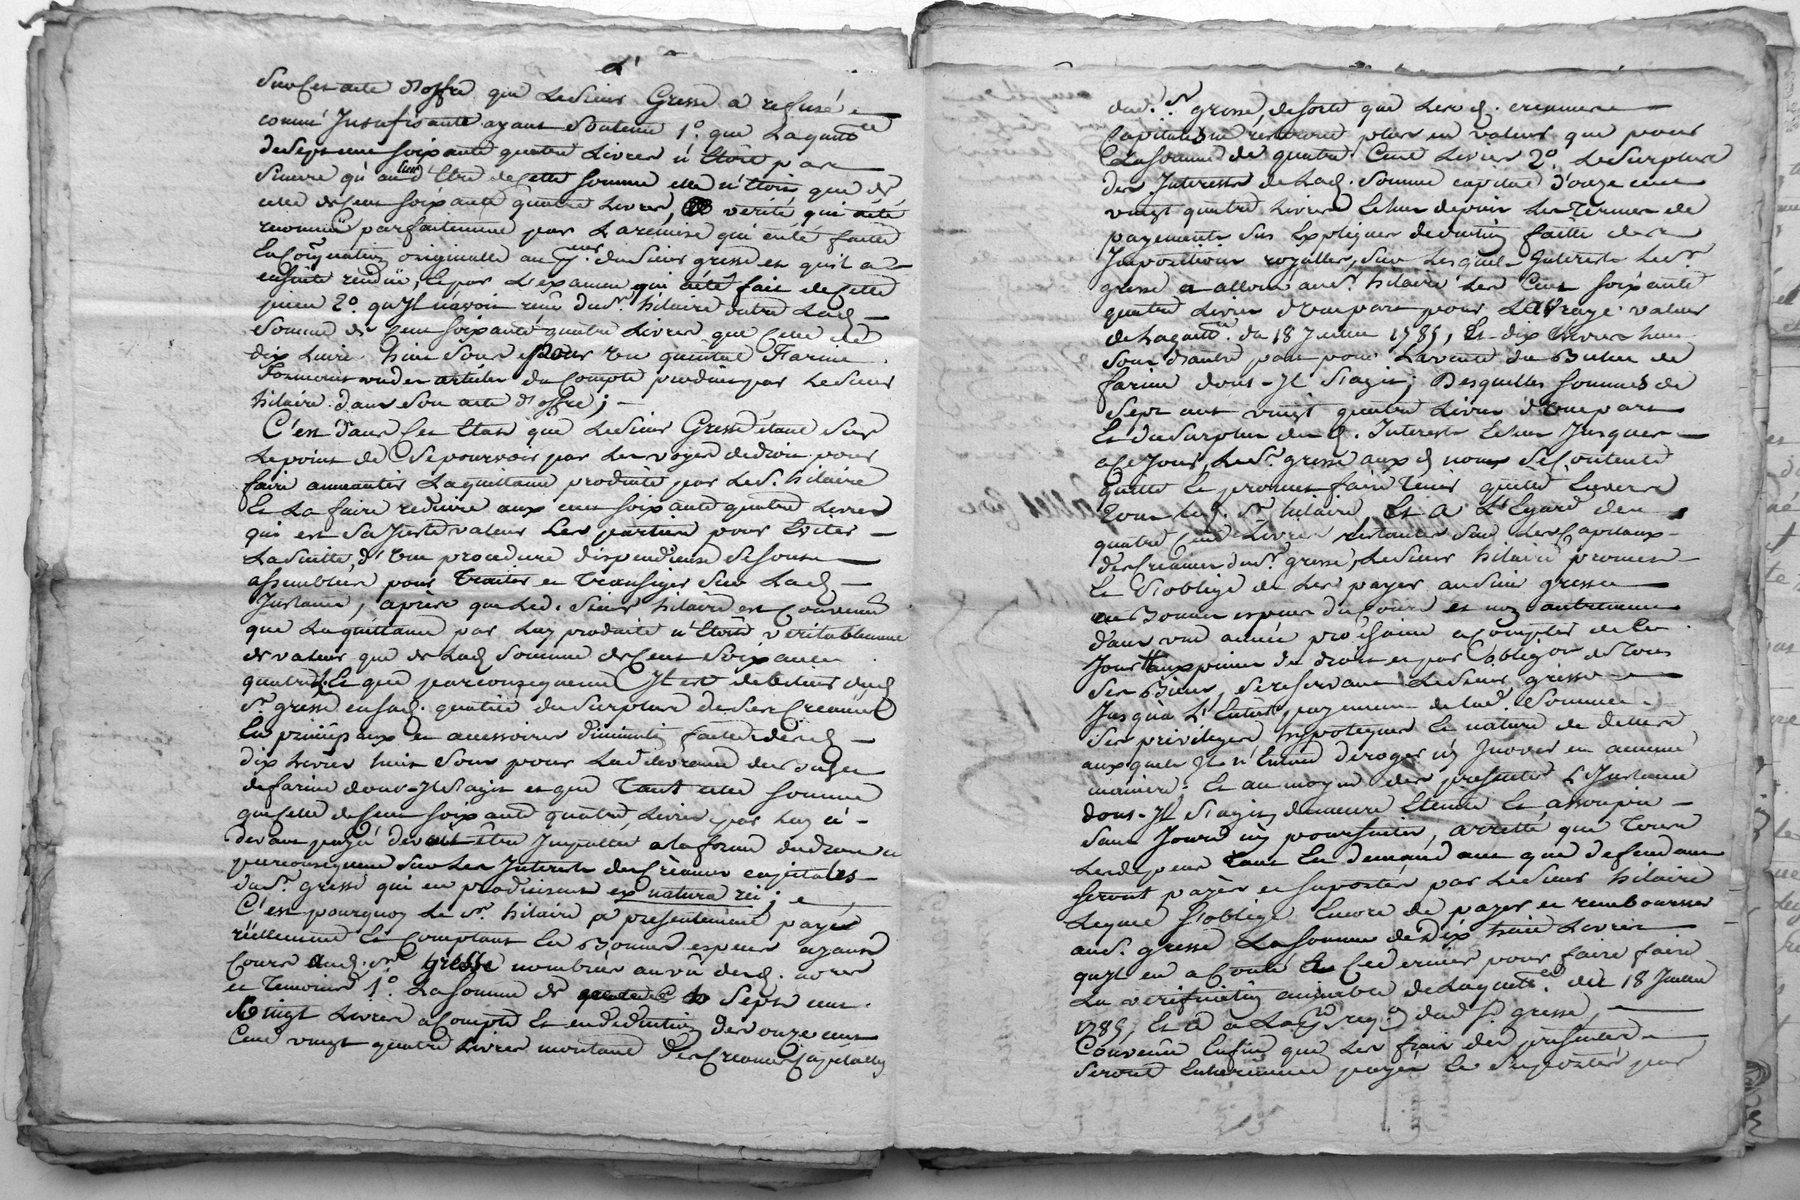 Sur Cet acte d'offre que Le Sieur Gresse a refusé
comme Insufisante ayant Soutenu 1.° que La quittce
de Sept cent soixante quatre Livres n'Etoit pas
Sincere qu'au lieu d'Etre de Cette somme elle n'Etoit que de
celle de Cent soixante quatre Livres, verité qui a été
reconnüe parfaitement par La remise qui en'a été faitte
En originalle au du Sieur gresse et qu'il a
ensuite rendüe, Et par L'examen qui a été fait de Cette
piece 2.° qu'Il n'avoit reçu du Sr. hilaire outre Lad.
Somme de Cent soixante quatre Livres que Celle de
dix Livres huit Sous pour un quintal Farine
articles du Compte produit par Le Sieur
hilaire dans Son acte d'offre;
C'est dans Cet Etat que Le Sieur Gresse étant Sur
Le point de Se pourvoir par Les voyes de droit pour
faire anneantir La quittance produitte par Le Sr. hilaire
Et La faire reduire aux cent soixante quatre Livres
qui est Sa Juste valeur Les parties pour Eviter
La Suitte d'Une procedure dispendieuse Se Sont
assemblées pour Traiter et Transiger Sur Lad.
Instance, après que Led. Sieur hilaire est Convenu
que La quittance par Luy produite n'Etoit veritablement
de valeur que de Lad. Somme de Cent Soixante
quatre L. Et que par consequent Il est debiteur dud.
Sr. gresse en sad. qualité du Surplus de Ses Creances
En principaux et accessoires diminution faitte desd.
dix Livres huit Sous pour La delivrance du
de farine dont Il S'agit et que Tant cette Somme
que Celle de Cent soixante quatre Livres par Luy ci-
devant payés devoit être Imputée a la forme du droit et
par consequent Sur Les Interets des Creances capitales
du Sr. gresse qui en produisent ex natura rei;
C'est pourquoy Le Sr. hilaire a presentement payé
réellement Et Comptant En Bonnes especes ayant
Cours aud. Sr. gresse nombrées au vû de nous.
et Temoins 1.° La Somme de Sept cent
Vingt Livres a Compte Et en deduction des onze cent
Cent vingt quatre Livres montant des Creances Capitalles
dud. Sr. gresse, de sorte que Lesd. creances
Capitales ne restent plus en valeur que pour
La Somme de quatre Cent Livres 2.° Le Surplus
des Interets de Lad. Somme capitale d'onze cent
vingt quatre Livres Echus depuis Les Termes de
payements Sus Expliqués deduction faitte des
Impositions royalles, Sur Lesquels Interets Le Sr.
gresse a alloué au Sr. hilaire Les Cent Soixante
quatre Livres d'une part pour La vraye valeur
de La quittce. du 18 Juillet 1785, Et dix Livres huit
Sous d'autre part pour La vente du de
farine dont Il S'agit; Desquelles sommes de
Sept cent vingt quatre Livres d'une part
Et du Surplus desd. Interets Echus Jusques
a Ce Jour Le Sr. gresse aux d. noms Se Contente
quitte Et promet faire Tenir quitte Envers
Tous Led. Sr. hilaire, Et A L'Egard des
quatre Cent Livres restantes Sur Les Capitaux
des Creances du Sr. gresse, Le Sieur hilaire promet
Et S'oblige de Les payer au Sieur gresse
en Bonnes especes du Cours et non autrement
dans une année prochaine a Compter de Ce
Jour aux peines de droit et par Obligon. de Tous
Ses Biens, Se reservant Le Sieur gresse
Jusqu'a L'Entier payement de lad. Somme
Ses privileges hypoteques Et nature de dettes
auxquels Il n'Entend deroger ny Inover en aucune
maniere. Et au moyen des presentes L'Instance
dont Il S'agit demeure Eteinte Et assoupie
Sans Jour ny poursuitte, arretté que Tous
Les depens Tant En demandant que defendant
seront payés et Suportés par Le Sieur hilaire
Lequel S'oblige Encore de payer et rembourser
au Sr. gresse La Somme de Dix huit Livres
qu'Il en a Couté a Ce dernier pour faire faire
La verification amiable de La quittce. du 18 Juillet
1785, Et a La dud. Sr. gresse,
Convenu Enfin que Les frais des presentes
Seront Entierement payés Et Suportés par